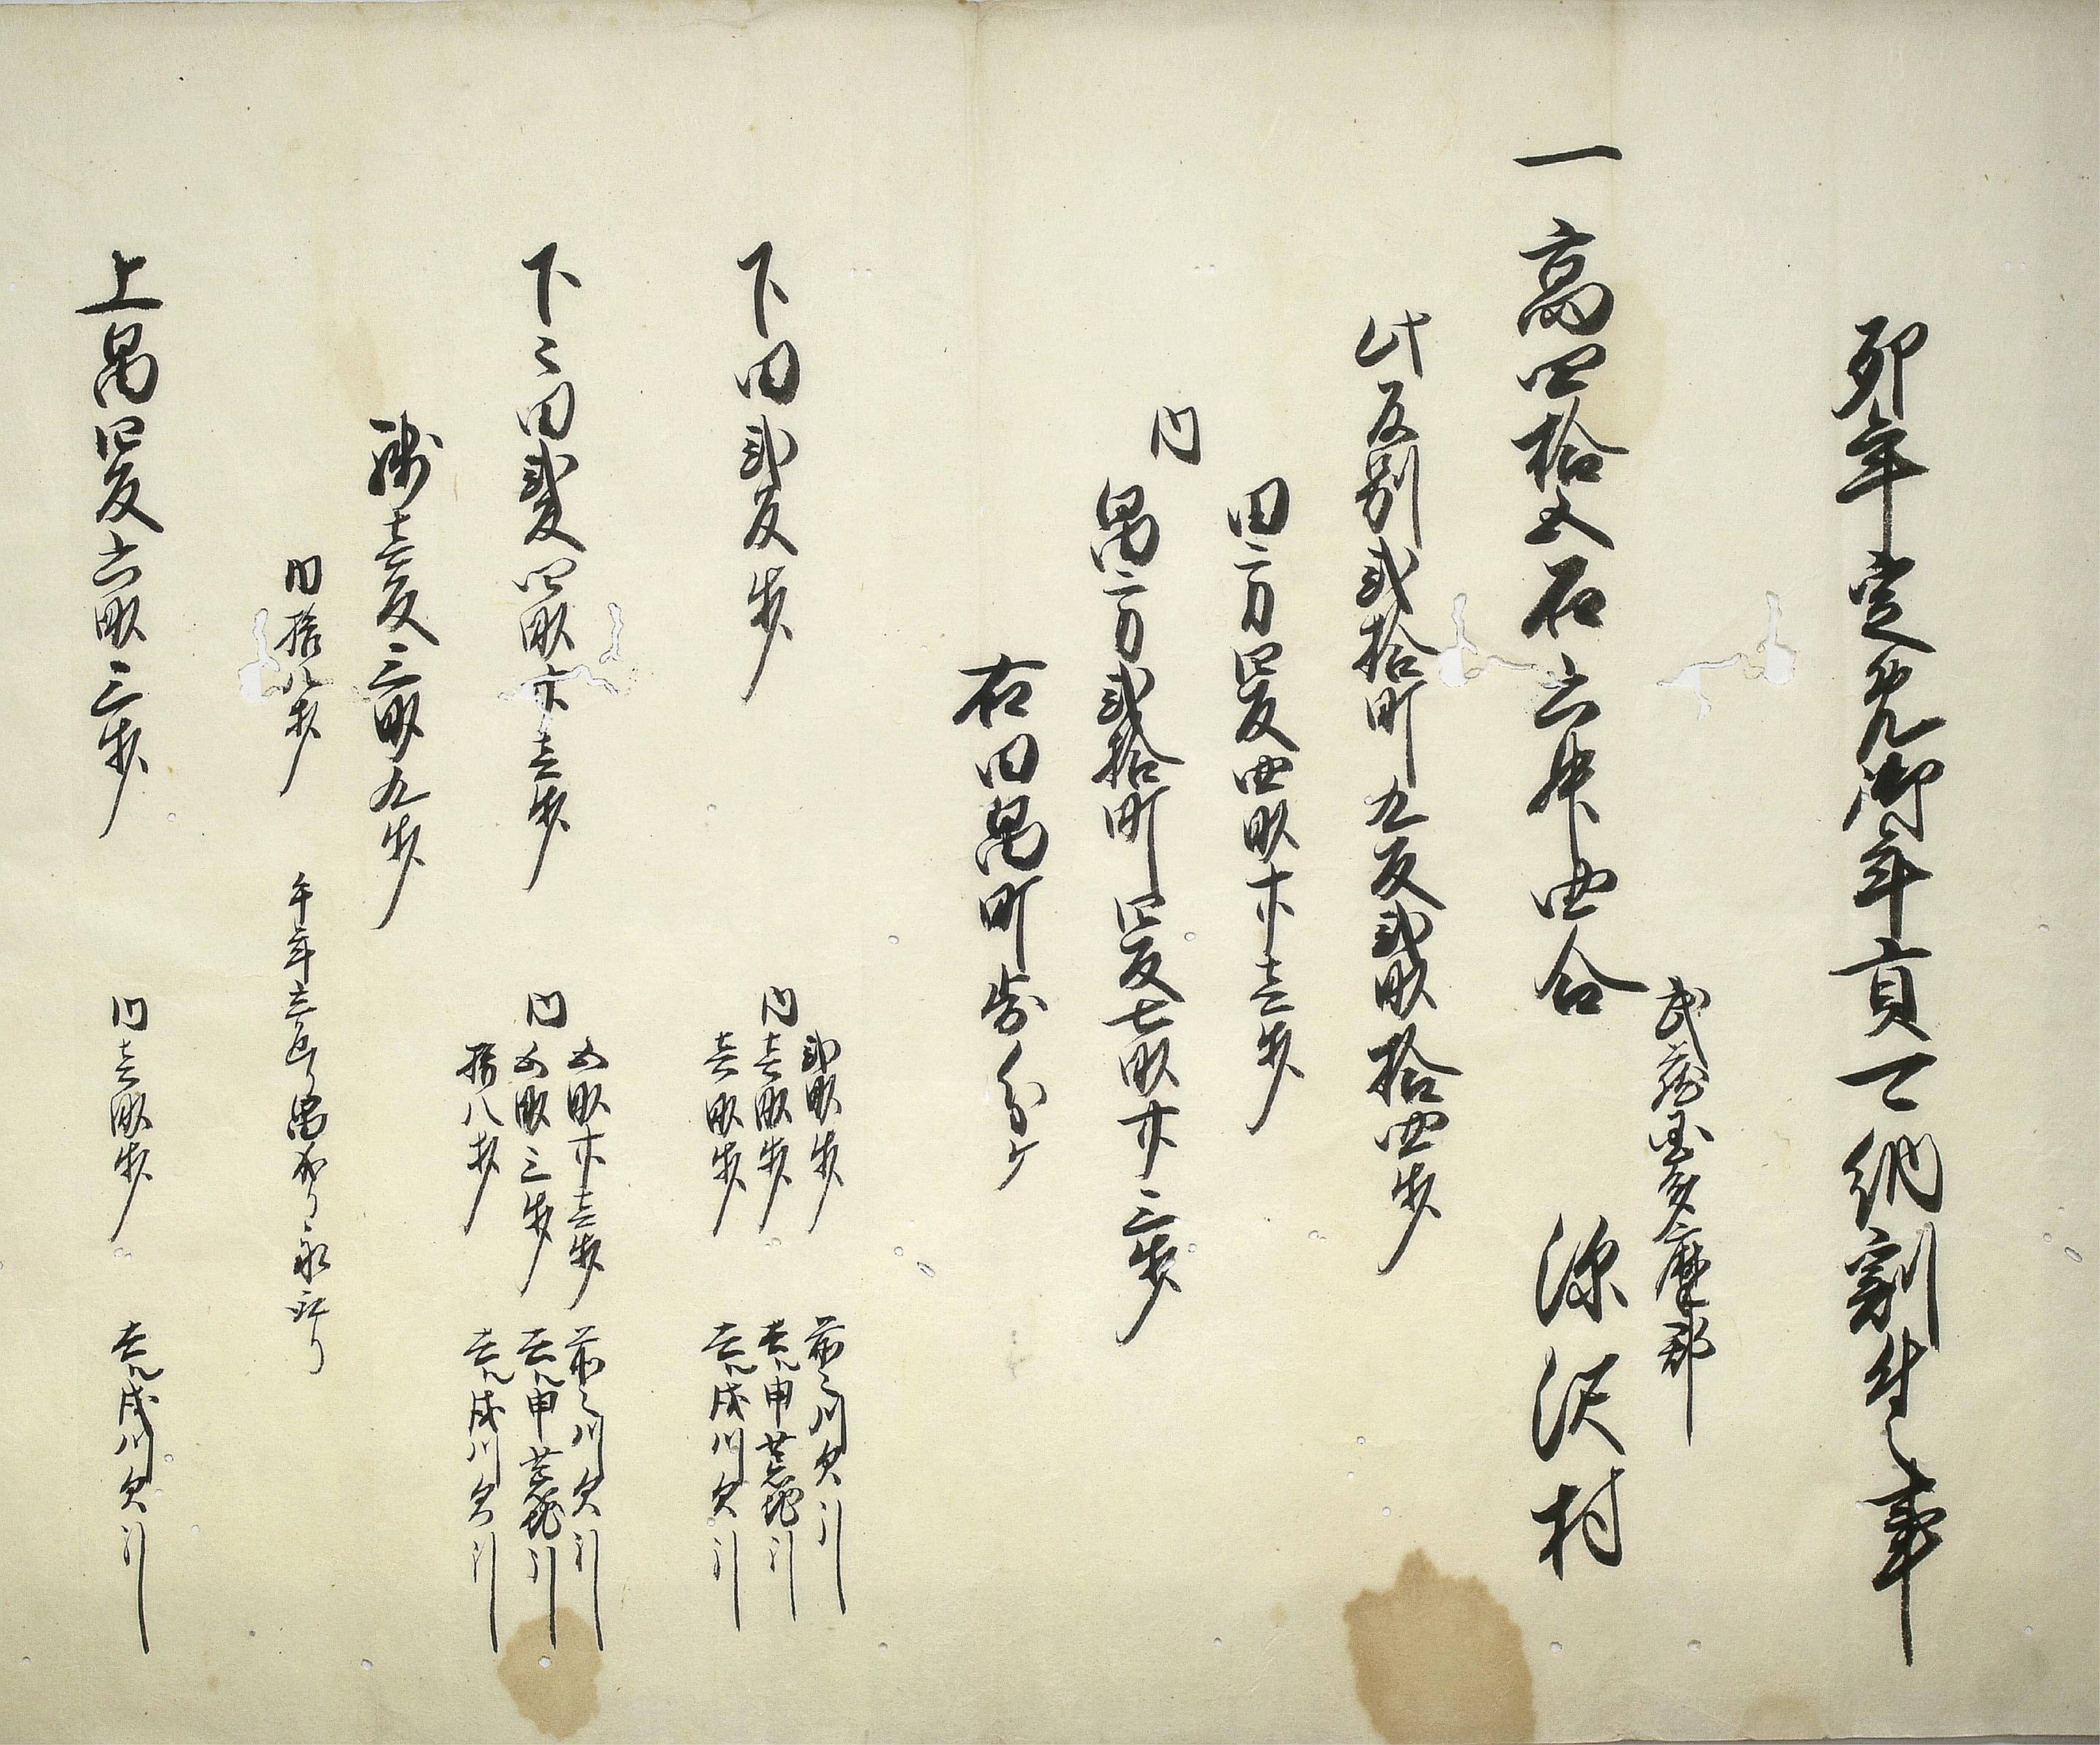 卯年定免御年貢可納割付之事
武蔵国多摩郡
一高四拾五石六升四合 深沢村
此反別弐拾町九反弐畝拾四歩
内
田方四反四畝廿壱歩
畠方弐拾町四反七畝廿三歩
右田畠町歩分ケ
下田弐反歩
内
弐畝歩 前々川欠引
壱畝歩 去ル申荒地引
壱畝歩 去ル戌川欠引
下々田弐反四畝廿壱歩
内
五畝廿壱歩 前々川欠引
五畝三歩 去ル申荒地引
拾八歩 去ル戌川欠引
残壱反三畝九歩
内拾八歩 午年立返り畠成り永取り
上畠四反六畝三歩
内壱畝歩 去ル戌川欠引